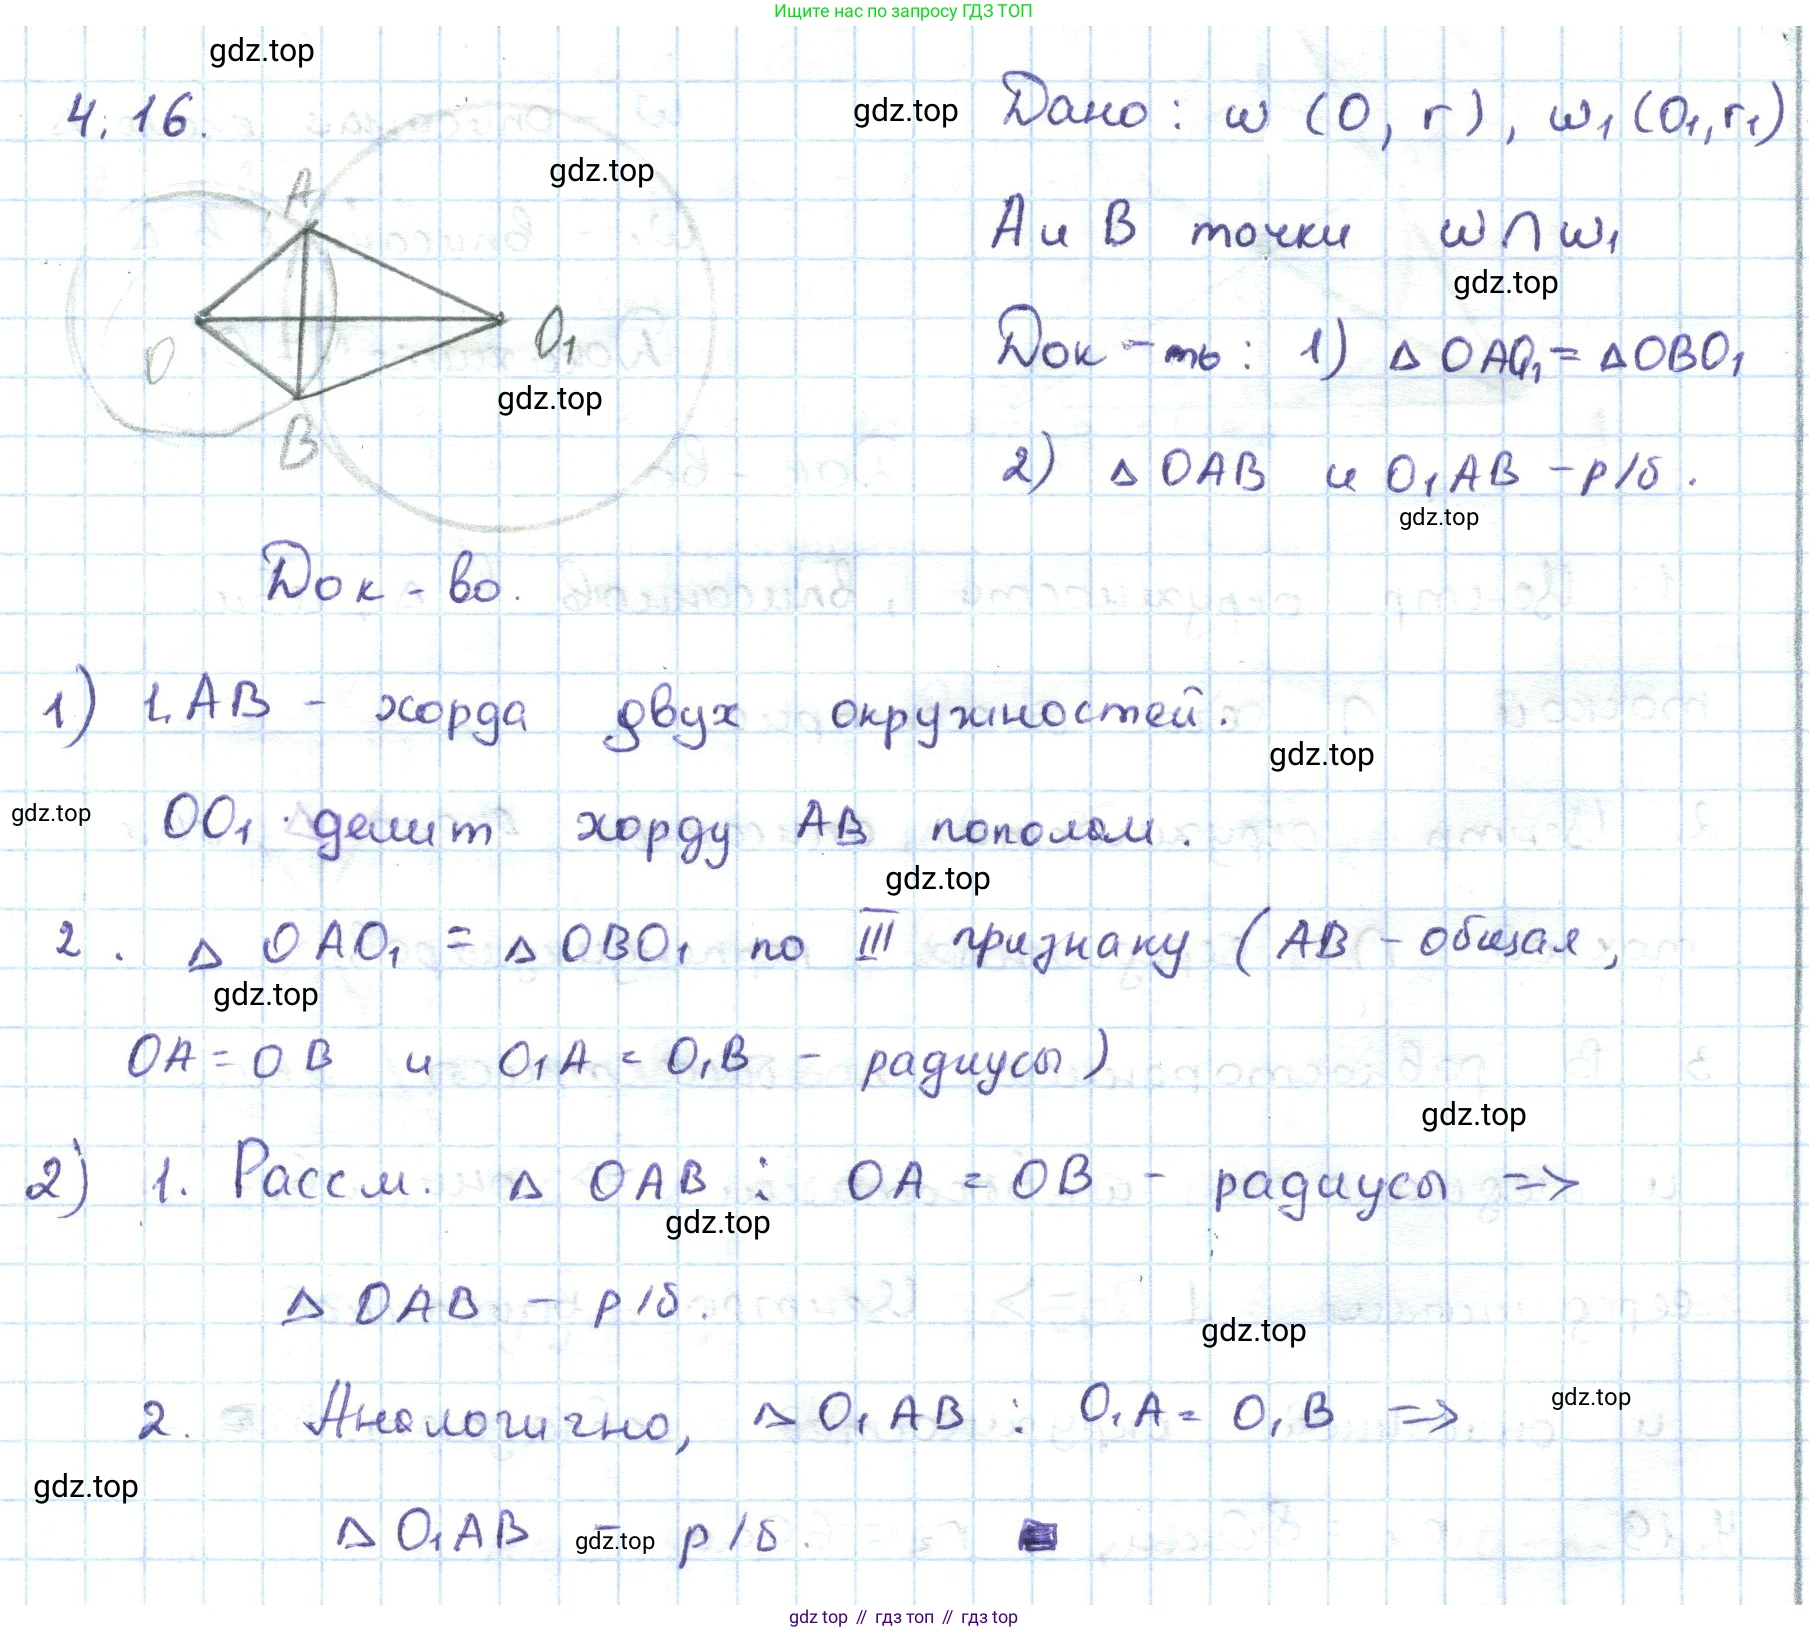 Ищите нас по запросу ГДЗ ТОП
gdz.top
4.16.
gdz.top
Дано: ω (O, r), ω₁ (O₁, r₁)
gdz.top
A
A и B точки ω ∩ ω₁
gdz.top
O
O₁
Док-ть: 1) Δ OAO₁ = Δ OBO₁
gdz.top
B
2) Δ OAB и O₁AB - р/б.
gdz.top
Док-во.
1) 1. AB - хорда двух окружностей.
gdz.top
gdz.top
OO₁ делит хорду AB пополам.
gdz.top
2. Δ OAO₁ = Δ OBO₁ по III признаку (AB - общая,
gdz.top
OA = OB и O₁A = O₁B - радиусы)
gdz.top
2) 1. Рассм. Δ OAB : OA = OB - радиусы =>
gdz.top
Δ OAB - р/б.
gdz.top
2. Аналогично, Δ O₁AB : O₁A = O₁B =>
gdz.top
gdz.top
Δ O₁AB - р/б.
gdz.top
gdz top // гдз топ // гдз top